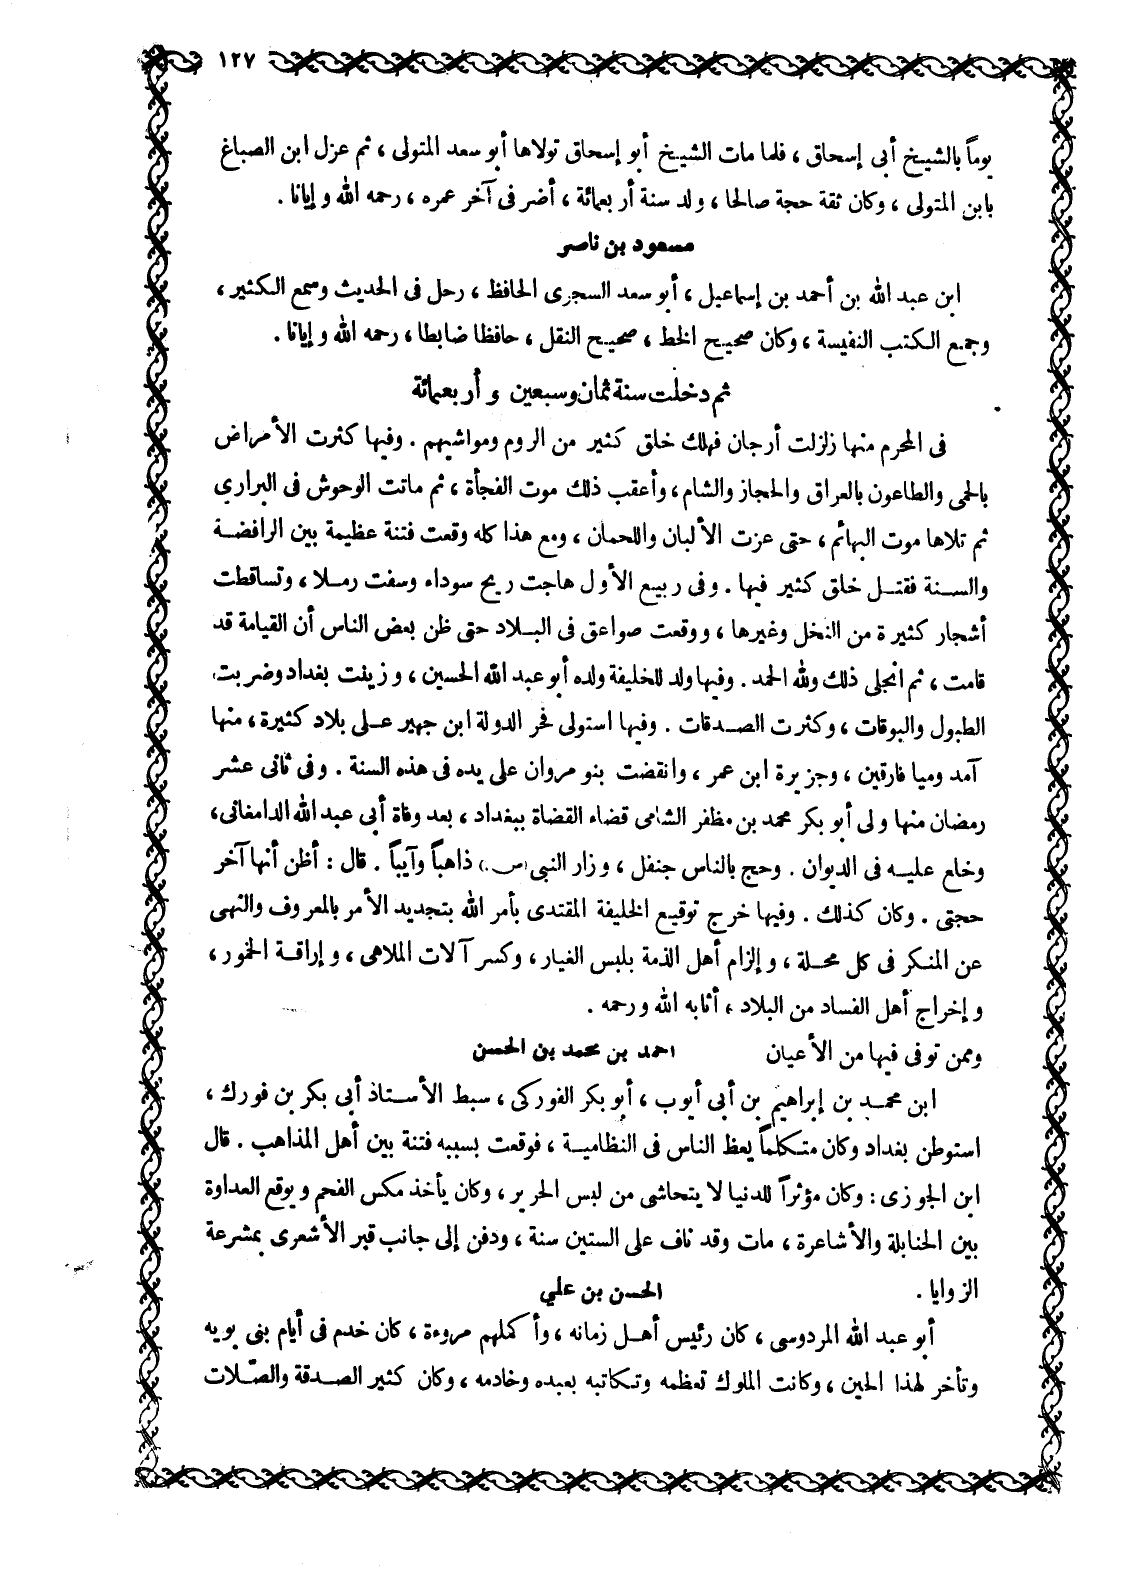 ١٢٧
يوماً بالشيخ أبى إسحاق ، فلما مات الشيخ أبو إسحاق تولاها أبو سعد المتولى ، ثم عزل ابن الصباغ
بابن المتولى ، وكان ثقة حجة صالحا ، ولد سنة أربعمائة ، أضر فى آخر عمره ، رحمه الله وإيانا .
مسعود بن ناصر
ابن عبد الله بن أحمد بن إسماعيل ، أبو سعد السجرى الحافظ ، رحل فى الحديث وسمع الكثير ،
وجمع الكتب النفيسة ، وكان صحيح الخط ، صحيح النقل ، حافظا ضابطا ، رحمه الله وإيانا .
ثم دخلت سنة ثمان وسبعين وأربعمائة
فى المحرم منها زلزلت أرجان فهلك خلق كثير من الروم ومواشيهم . وفيها كثرت الأمراض
بالحمى والطاعون بالعراق والحجاز والشام ، وأعقب ذلك موت الفجأة ، ثم ماتت الوحوش فى البراري
ثم تلاها موت البهائم ، حتى عزت الألبان واللحمان ، ومع هذا كله وقعت فتنة عظيمة بين الرافضة
والسنة فقتل خلق كثير فيها . وفى ربيع الأول هاجت ريح سوداء وسفت رملا ، وتساقطت
أشجار كثيرة من النخل وغيرها ، ووقعت صواعق فى البلاد حتى ظن بعض الناس أن القيامة قد
قامت ، ثم انجلى ذلك ولله الحمد . وفيها ولد للخليفة ولده أبو عبد الله الحسين ، وزينت بغداد وضربت
الطبول والبوقات ، وكثرت الصدقات . وفيها استولى فخر الدولة ابن جهير على بلاد كثيرة ، منها
آمد وميا فارقين ، وجزيرة ابن عمر ، وانقضت بنو مروان على يده فى هذه السنة . وفى ثانى عشر
رمضان منها ولى أبو بكر محمد بن مظفر الشامى قضاء القضاة ببغداد ، بعد وفاة أبى عبد الله الدامغانى ،
وخلع عليه فى الديوان . وحج بالناس جنفل ، وزار النبى (ص.) ذاهباً وآيباً . قال : أظن أنها آخر
حجتى . وكان كذلك . وفيها خرج توقيع الخليفة المقتدى بأمر الله بتجديد الأمر بالمعروف والنهى
عن المنكر فى كل محلة ، وإلزام أهل الذمة بلبس الغيار ، وكسر آلات الملاهى ، وإراقة الخمور ،
وإخراج أهل الفساد من البلاد ، أثابه الله ورحمه .
وممن توفى فيها من الأعيان احمد بن محمد بن الحسن
ابن محمد بن إبراهيم بن أبى أيوب ، أبو بكر الفوركى ، سبط الأستاذ أبى بكر بن فورك ،
استوطن بغداد وكان متكلماً يعظ الناس فى النظامية ، فوقعت بسببه فتنة بين أهل المذاهب . قال
ابن الجوزى : وكان مؤثراً للدنيا لا يتحاشى من لبس الحرير ، وكان يأخذ مكس الفحم ويوقع العداوة
بين الحنابلة والأشاعرة ، مات وقد ناف على الستين سنة ، ودفن إلى جانب قبر الأشعرى بمشرعة
الزوايا . الحسن بن علي
أبو عبد الله المردوسى ، كان رئيس أهل زمانه ، وأكملهم مروءة ، كان خدم فى أيام بنى بويه
وتأخر لهذا الحين ، وكانت الملوك تعظمه وتكاتبه بعبده وخادمه ، وكان كثير الصدقة والصّلات